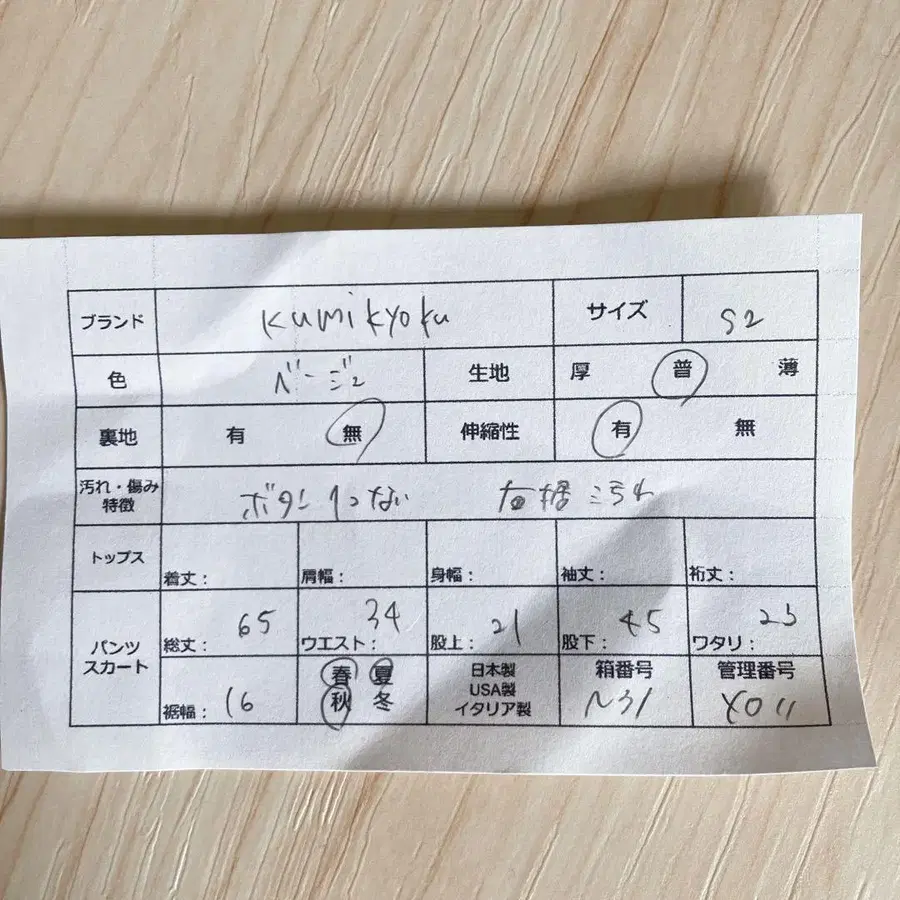 ブランド kumikyoku サイズ S2
色 ベージュ 生地 厚 普 薄
裏地 有 無 伸縮性 有 無
汚れ・傷み
特徴 ボタン1つない 右裾 汚れ
トップス 着丈: 肩幅: 身幅: 袖丈: 裄丈:
パンツ
スカート 総丈: 65 ウエスト: 34 股上: 21 股下: 45 ワタリ:
裾幅: 16 春 夏 秋 冬 日本製 USA製 イタリア製 箱番号 N31 管理番号